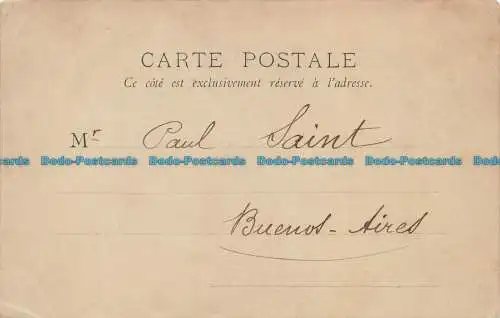 CARTE POSTALE
Ce côté est exclusivement réservé à l'adresse.
Mr Paul Saint
Dodo-Postcards Dodo-Postcards Dodo-Postcards Dodo-Postcards Dodo-Postcards
Buenos-Aires